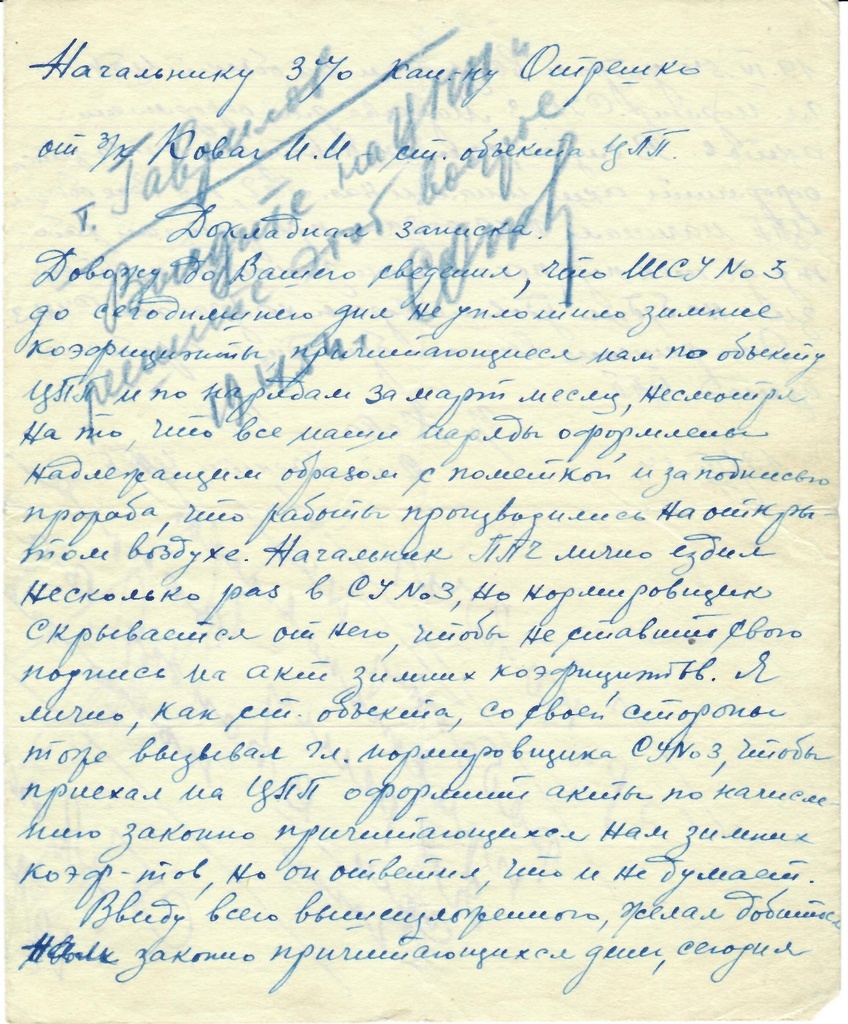 Начальнику 3 ч/о кап-ну Отрешко
от з/к Ковач И.И. ст. объекта ЦПП.
Докладная записка.
Довожу до Вашего сведения, что МСУ No 3
до сегодняшнего дня не уплотило зимние
коэфициэнты причитающиеся нам по объекту
ЦПП и по нарядам за март месяц, несмотря
на то, что все наши наряды оформлены
надлежащим образом с пометкой и за подписью
прораба, что работы производились на откры-
том воздухе. Начальник ППЧ лично ездил
несколько раз в СУ No 3, но нормировщик
скрывается от него, чтобы не ставить свою
подпись на акт зимних коэфициэнтов. Я
лично, как ст. объекта, со своей стороны
тоже вызывал гл. нормировщика СУ No 3, чтобы
приехал на ЦПП оформить акты по начисле-
нию законно причитающихся нам зимних
коэф-тов, но он ответил, что и не думает.
Ввиду всего вышеизложенного, желая добиться
законно причитающихся денег, сегодня
т. Гаврилов
решите этот вопрос